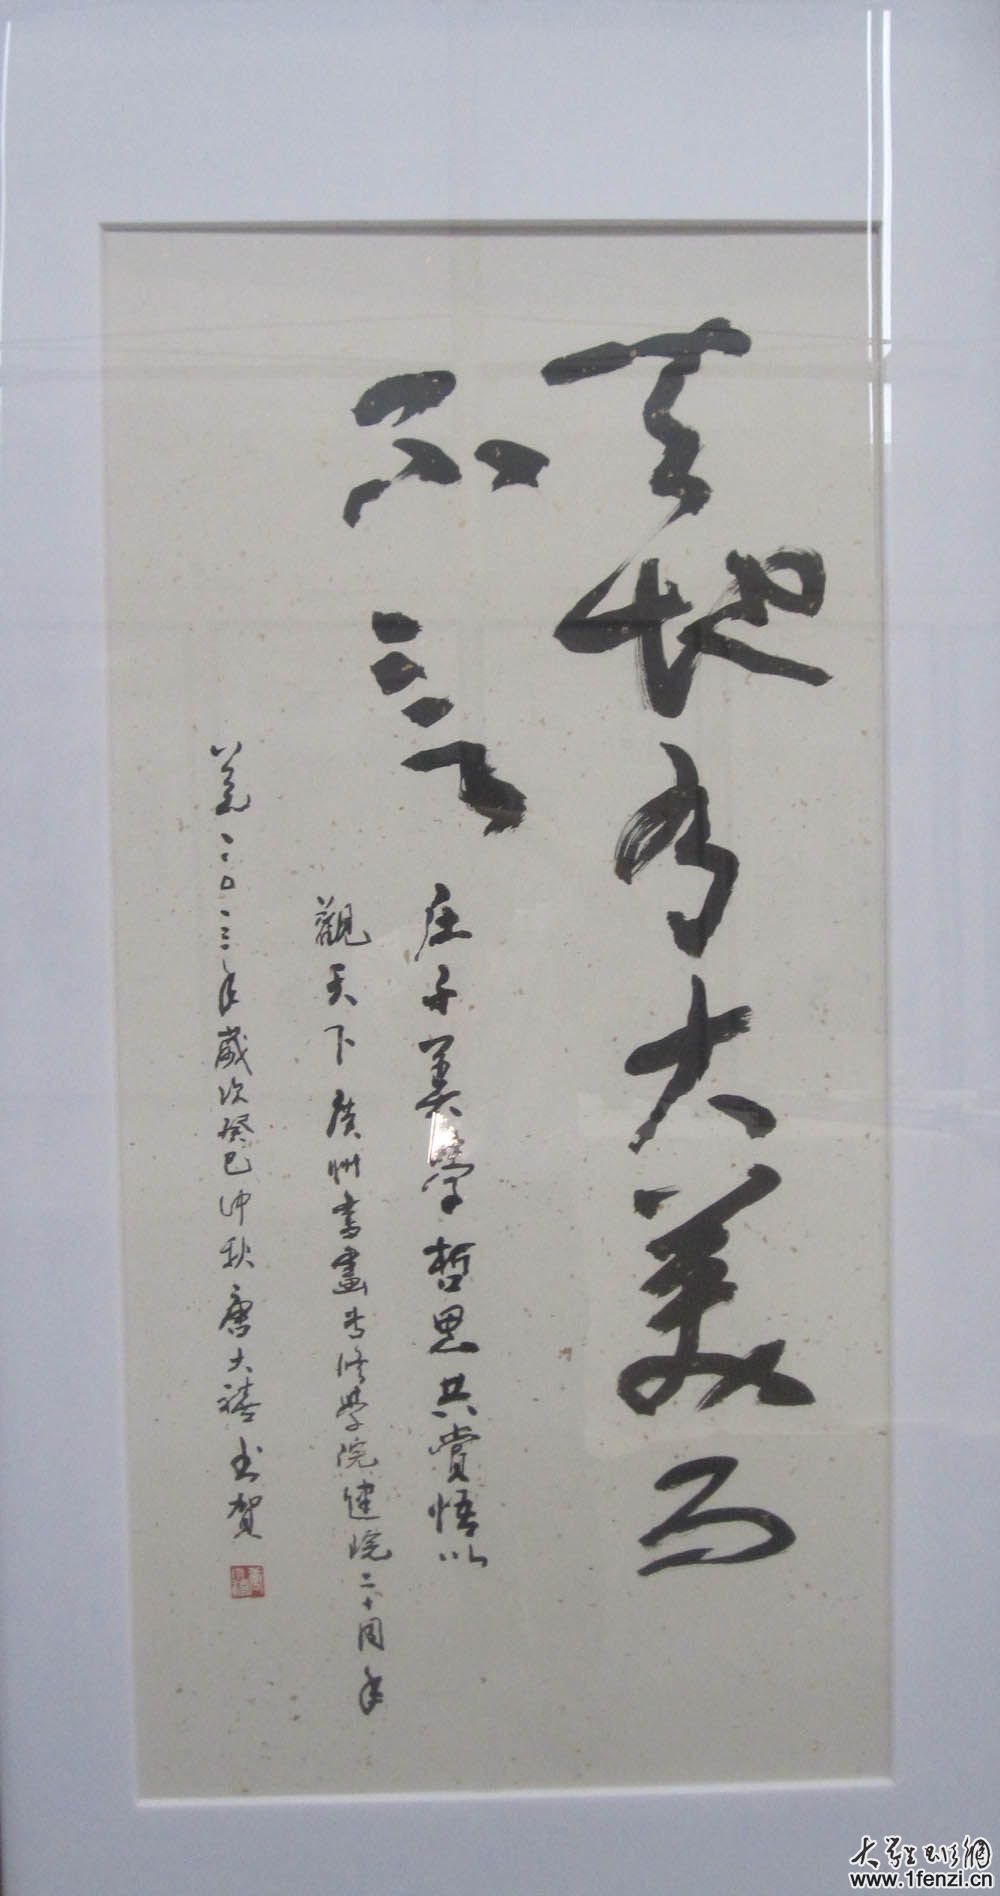 天地有大美而
不言
庄子美學哲思共賞悟以
觀天下廣州書畫专修學院建院二十周年
二〇一三年歲次癸巳仲秋唐大禧书賀
大学生书法網
www.1fenzi.cn